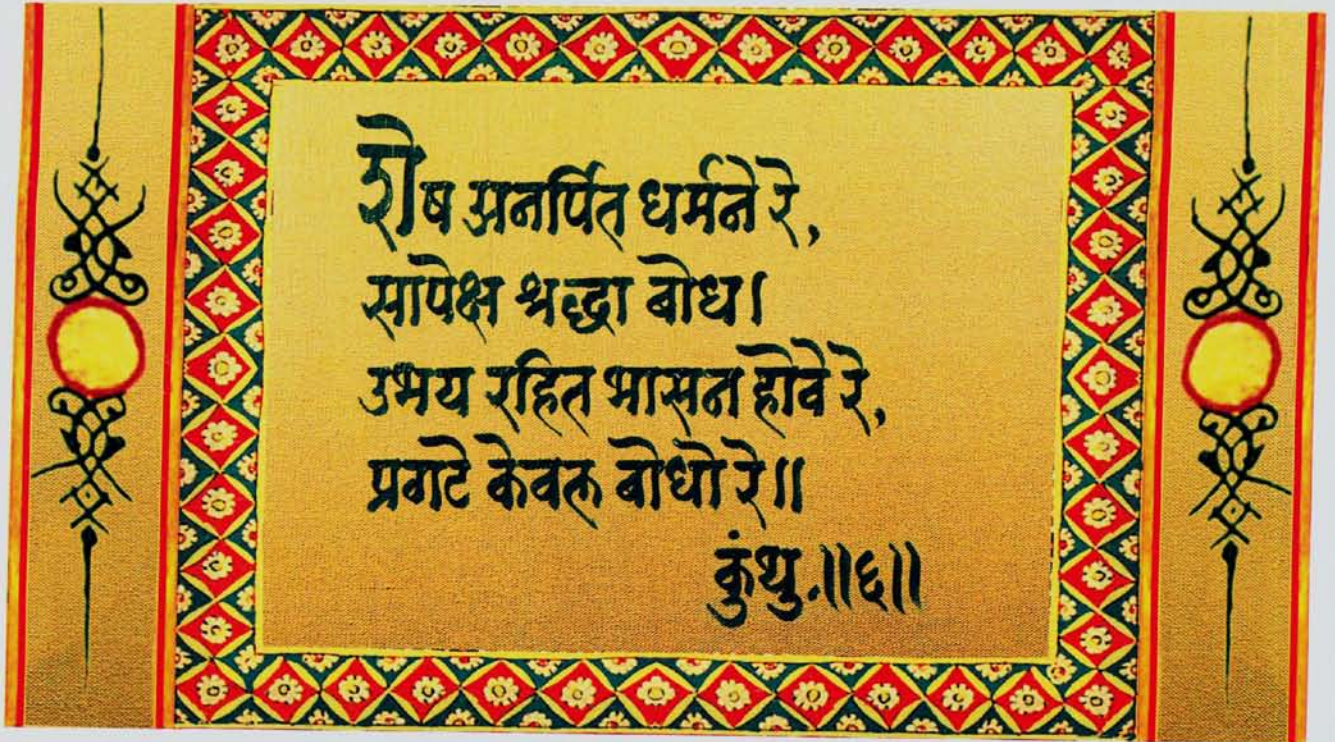 शेष अनर्पित धर्मने रे,
सापेक्ष श्रद्धा बोध।
उभय रहित भासन होवे रे,
प्रगटे केवल बोधो रे॥
कुंथु.॥६॥